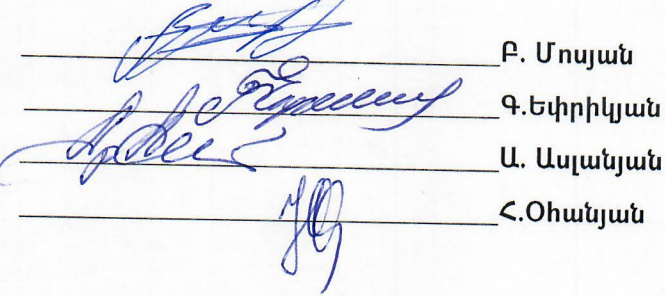 Բ. Մոսյան
Գ.Եփրիկյան
Ա. Ասլանյան
Հ.Օհանյան